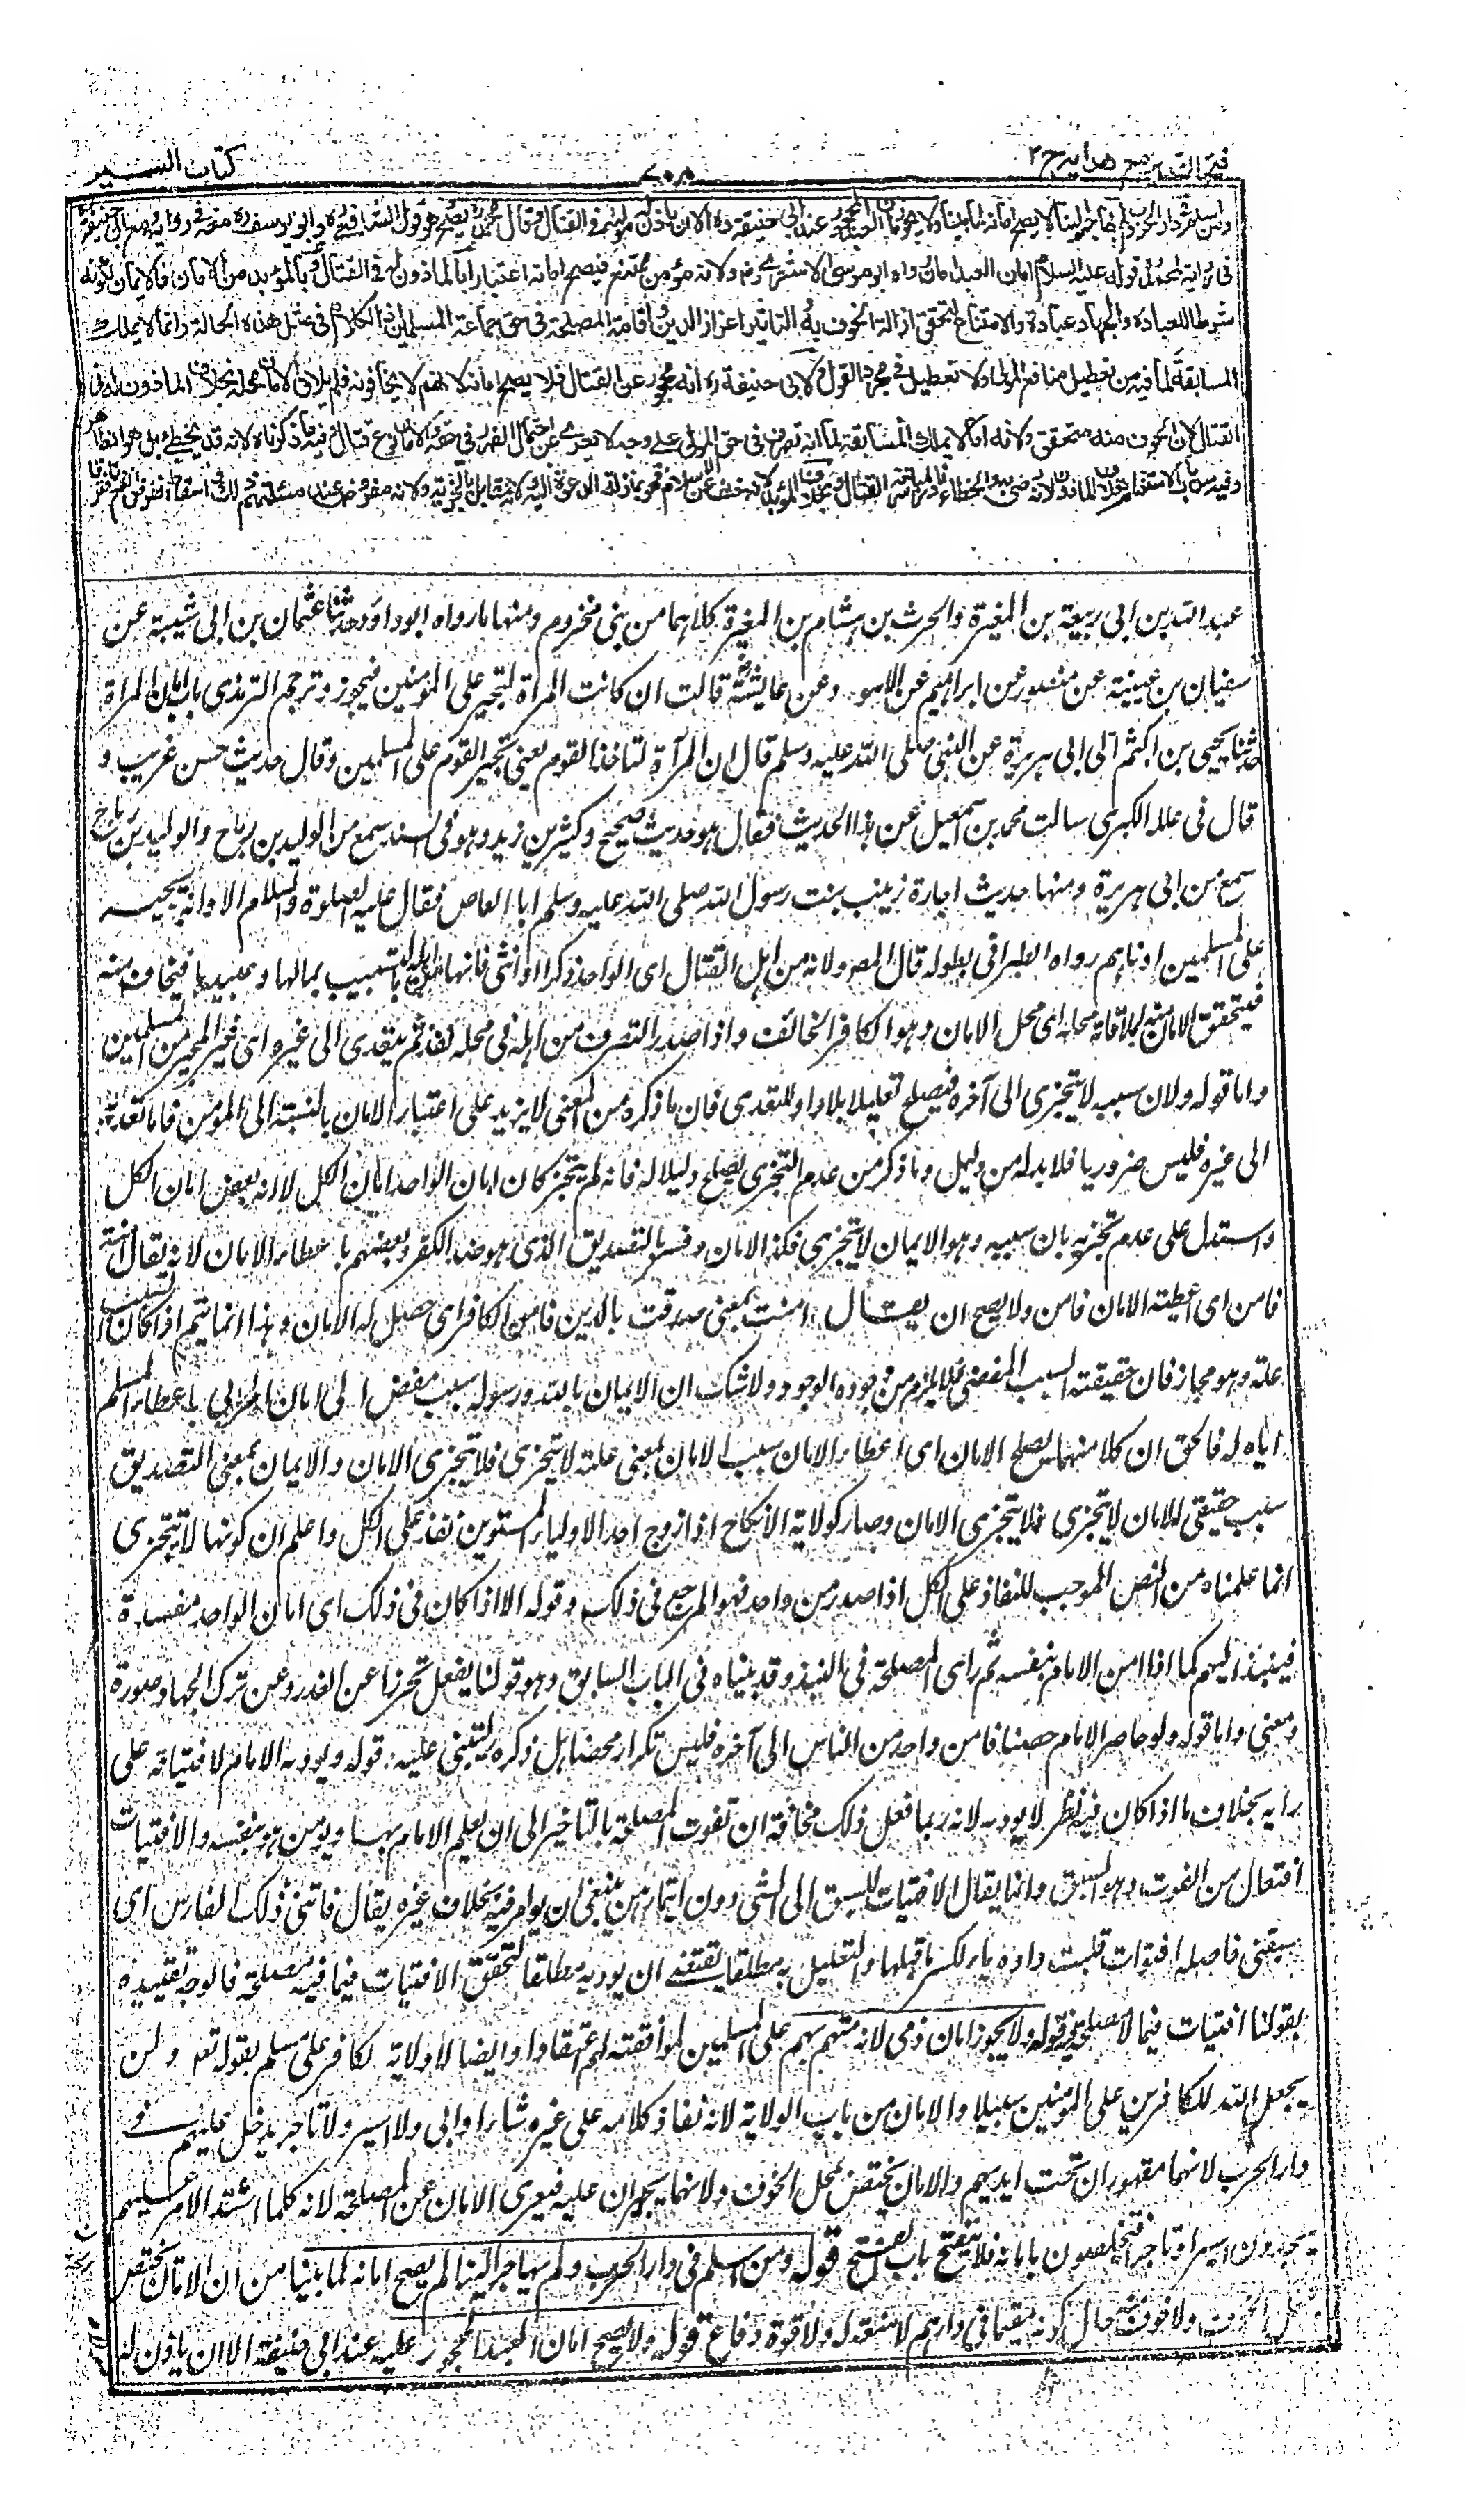 فتح القدير مع هداية ج ٢
٧٠٨
كتاب السير
ومن اسلم في دار الحرب ولم يهاجر الينا لا يصح امانه لما بينا ولا يجوز امان العبد المحجور عند ابي حنيفة ره الا ان ياذن له مولاه في القتال وقال محمد ره يصح وهو قول الشافعي ره وابو يوسف ره معه في رواية ومع ابي حنيفة ره
في رواية لمحمد قوله عليه السلام امان العبد امان رواه ابو موسى الاشعري رض ولانه مؤمن ممتنع فيصح امانه اعتبارا بالماذون له في القتال وبالمؤبد من الامان فالايمان لكونه
شرطا للعبادة والجهاد عبادة والامتناع لتحقق ازالة الخوف به والتاثير اعزاز الدين واقامة المصلحة في حق جماعة المسلمين اذ الكلام في مثل هذه الحالة وانما لا يملك
المسابقة لما فيه من تعطيل منافع المولى ولا تعطيل في مجرد القول ولابي حنيفة ره انه محجور عن القتال فلا يصح امانه لانهم لا يخافونه فلم يلاق الامان محله بخلاف الماذون له في
القتال لان الخوف منه متحقق ولانه انما لا يملك المسابقة لما انه تصرف في حق المولى على وجه لا يعرى عن احتمال الضرر في حقه والامان نوع قتال وفيه ما ذكرناه لانه قد يخطئ بل هو الظاهر
وفيه سد باب الاستغنام بخلاف الماذون لانه رضي به والخطاء نادر لمباشرته القتال وبخلاف المؤبد لانه خلف عن الاسلام فهو بمنزلة الدعوة اليه ولانه مقابل بالجزية ولانه مفروض عند مسئلتهم ذلك واسقاط الفرض نفع فافترقا
عبد الله بن ابي ربيعة بن المغيرة والحرث بن هشام بن المغيرة كلاهما من بني مخزوم ومنها ما رواه ابو داود حدثنا عثمان بن ابي شيبة عن
سفيان بن عيينة عن منصور عن ابراهيم عن الاسود عن عايشة رض قالت ان كانت المراة لتجير على المومنين فيجوز وترجم الترمذي باب امان المراة
حدثنا يحيى بن اكثم الى ابي هريرة عن النبي صلى الله عليه وسلم قال ان المرآة لتاخذ القوم يعني تجير القوم على المسلمين وقال حديث حسن غريب و
قال في علله الكبرى سالت محمد بن اسمعيل عن هذا الحديث فقال هو حديث صحيح وكثير بن زيد وهو في السند سمع من الوليد بن رباح والوليد بن رباح
سمع من ابي هريرة ومنها حديث اجارة زينب بنت رسول الله صلى الله عليه وسلم ابا العاص فقال عليه الصلوة والسلام الا وانه يجير
على المسلمين ادناهم رواه الطبراني بطوله قال المص ولانه من اهل القتال اي الواحد ذكرا او انثى فانها من اهله بالتسبيب بمالها وعبيدها فيخافون منه
فيتحقق الامان منه لملاقاته محله اي محل الامان وهو الكافر الخائف واذا صدر التصرف من اهله في محله نفذ ثم يتعدى الى غيره اي غير المجير من المسلمين
واما قوله ولان سببه لا يتجزى الى آخره فيصلح تعليلا بلا واو للتعدي فان ما ذكره من المعنى لا يزيد على اعتبار الامان بالنسبة الى المؤمن فاما تعديته
الى غيره فليس ضروريا فلا بد له من دليل وما ذكر من عدم التجزي يصلح دليلا له فانه لم يتجز كان امان الواحد امان الكل لا انه بعض امان الكل
واستدل على عدم تجزيه بان سببه وهو الايمان لا يتجزى فكذا الامان وفسر بالتصديق الذي هو ضد الكفر وبعضهم باعطاء الامان لانه يقال امنته
فامن اي اعطيته الامان فامن ولا يصح ان يقال امنت بمعنى صدقت بالدين فامن الكافر اي حصل له الامان وهذا انما يتم اذا كان السبب
علة وهو مجاز فان حقيقته السبب المفضي فلا يلزم من وجوده الوجود ولا شك ان الايمان بالله ورسوله سبب مفض الى امان الحربي باعطاء المسلم
اياه له فالحق ان كلا منهما يصلح الامان اي اعطاء الامان سبب الامان بمعنى علته لا يتجزى فلا يتجزى الامان والايمان بمعنى التصديق
سبب حقيقي للامان لا يتجزى فلا يتجزى الامان وصار كولاية الانكاح اذا زوج احد الاولياء المستوين نفذ على الكل واعلم ان كونها لا تتجزى
انما علمناه من النص الموجب للنفاذ على الكل اذا صدر من واحد فهو المرجع في ذلك وقوله الا اذا كان في ذلك اي امان الواحد مفسدة
فينبذ اليهم كما اذا امن الامام بنفسه ثم راى المصلحة في النبذ وقد بيناه في الباب السابق وهو قولنا يفعل تحرزا عن الغدر وعن ترك الجهاد صورة
ومعنى واما قوله ولو حاصر الامام حصنا فامن واحد من الناس الى آخره فليس تكرار محضا بل ذكره ليبتني عليه قوله ويؤدبه الامام لافتياته على
رايه بخلاف ما اذا كان فيه نظر لا يؤدبه لانه ربما فعل ذلك مخافة ان تفوت المصلحة بالتاخير الى ان يعلم الامام بها ويومن هو بنفسه والافتيات
افتعال من الفوت وهو السبق وانما يقال الافتيات للسبق الى الشي دون ايتمار من ينبغي ان يوامر فيه بخلاف غيره يقال فاتني ذلك الفارس اي
سبقني فاصله افتوات قلبت واوه ياء لكسر ما قبلها والتعليل به مطلقا يقتضي ان يودبه مطلقا لتحقق الافتيات فيما فيه مصلحة فالوجه تقييده
بقولنا افتيات فيما لا مصلحة فيه قوله ولا يجوز امان ذمي لانه متهم بهم على المسلمين لموافقته لهم اعتقادا وايضا لا ولاية لكافر على مسلم بقوله تعه ولن
يجعل الله للكافرين على المؤمنين سبيلا والامان من باب الولاية لانه نفاذ كلامه على غيره شاء او ابى ولا اسير ولا تاجر يدخل عليهم في
دار الحرب لانهما مقهوران تحت ايديهم والامان يختص بمحل الخوف ولانهما يجبران عليه فيعرى الامان عن المصلحة لانه كلما اشتد الامر عليهم
يجدون اسيرا وتاجرا فيتخلصون بامانه فلا ينفتح باب الفتح قوله ومن اسلم في دار الحرب ولم يهاجر الينا لم يصح امانه لما بينا من ان الامان يختص
بمحل الخوف ولا خوف منه حال كونه مقيما في دارهم لا منعة له ولا قوة دفاع قوله ولا يصح امان العبد المحجور عليه عند ابي حنيفة الا ان ياذن له